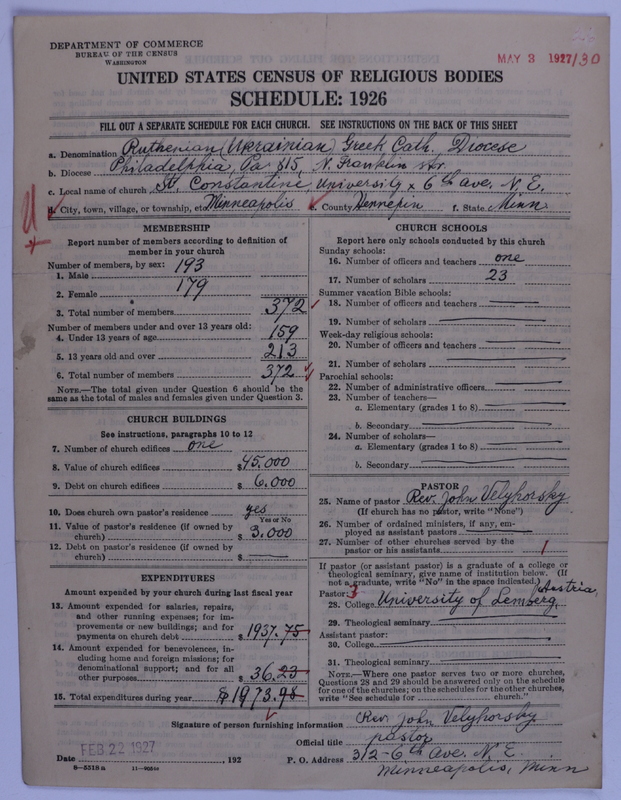 DEPARTMENT OF COMMERCE
BUREAU OF THE CENSUS
WASHINGTON
MAY 3 1927/30
UNITED STATES CENSUS OF RELIGIOUS BODIES
SCHEDULE: 1926
FILL OUT A SEPARATE SCHEDULE FOR EACH CHURCH. SEE INSTRUCTIONS ON THE BACK OF THIS SHEET
a. Denomination Ruthenian (Ukrainian) Greek Cath. Diocese
b. Diocese Philadelphia, Pa 815, N. Franklin str.
c. Local name of church St. Constantine, University & 6th ave. N. E.
d. City, town, village, or township, etc Minneapolis e. County Hennepin f. State Minn
MEMBERSHIP
Report number of members according to definition of
member in your church
Number of members, by sex:
1. Male 193
2. Female 179
3. Total number of members 372
Number of members under and over 13 years old:
4. Under 13 years of age 159
5. 13 years old and over 213
6. Total number of members 372
NOTE.—The total given under Question 6 should be
same as the total of males and females given under Question 3.
CHURCH BUILDINGS
See instructions, paragraphs 10 to 12
7. Number of church edifices one
8. Value of church edifices $45.000
9. Debt on church edifices $6.000
10. Does church own pastor's residence yes
Yes or No
11. Value of pastor's residence (if owned by
church) $3.000
12. Debt on pastor's residence (if owned by
church) $
EXPENDITURES
Amount expended by your church during last fiscal year
13. Amount expended for salaries, repairs,
and other running expenses; for im-
provements or new buildings; and for
payments on church debt $1937.75
14. Amount expended for benevolences, in-
cluding home and foreign missions; for
denominational support; and for all
other purposes $36.23
15. Total expenditures during year $1973.98
CHURCH SCHOOLS
Report here only schools conducted by this church
Sunday schools:
16. Number of officers and teachers one
17. Number of scholars 23
Summer vacation Bible schools:
18. Number of officers and teachers
19. Number of scholars
Week-day religious schools:
20. Number of officers and teachers
21. Number of scholars
Parochial schools:
22. Number of administrative officers
23. Number of teachers—
a. Elementary (grades 1 to 8)
b. Secondary
24. Number of scholars—
a. Elementary (grades 1 to 8)
b. Secondary
PASTOR
25. Name of pastor Rev. John Velyhorsky
(If church has no pastor, write "None")
26. Number of ordained ministers, if any, em-
ployed as assistant pastors
27. Number of other churches served by the
pastor or his assistants 1
If pastor (or assistant pastor) is a graduate of a college or
theological seminary, give name of institution below. (If
not a graduate, write "No" in the space indicated.)
Pastor:
28. College University of Lemberg, Austria,
29. Theological seminary
Assistant pastor:
30. College
31. Theological seminary
NOTE.—Where one pastor serves two or more churches,
Questions 28 and 29 should be answered only on the schedule
for one of the churches; on the schedules for the other churches,
write "See schedule for ........ church."
Signature of person furnishing information Rev. John Velyhorsky
Official title pastor
Date FEB 22 1927 192 P. O. Address 312-6th ave. N. E.
Minneapolis, Minn
8—5318a